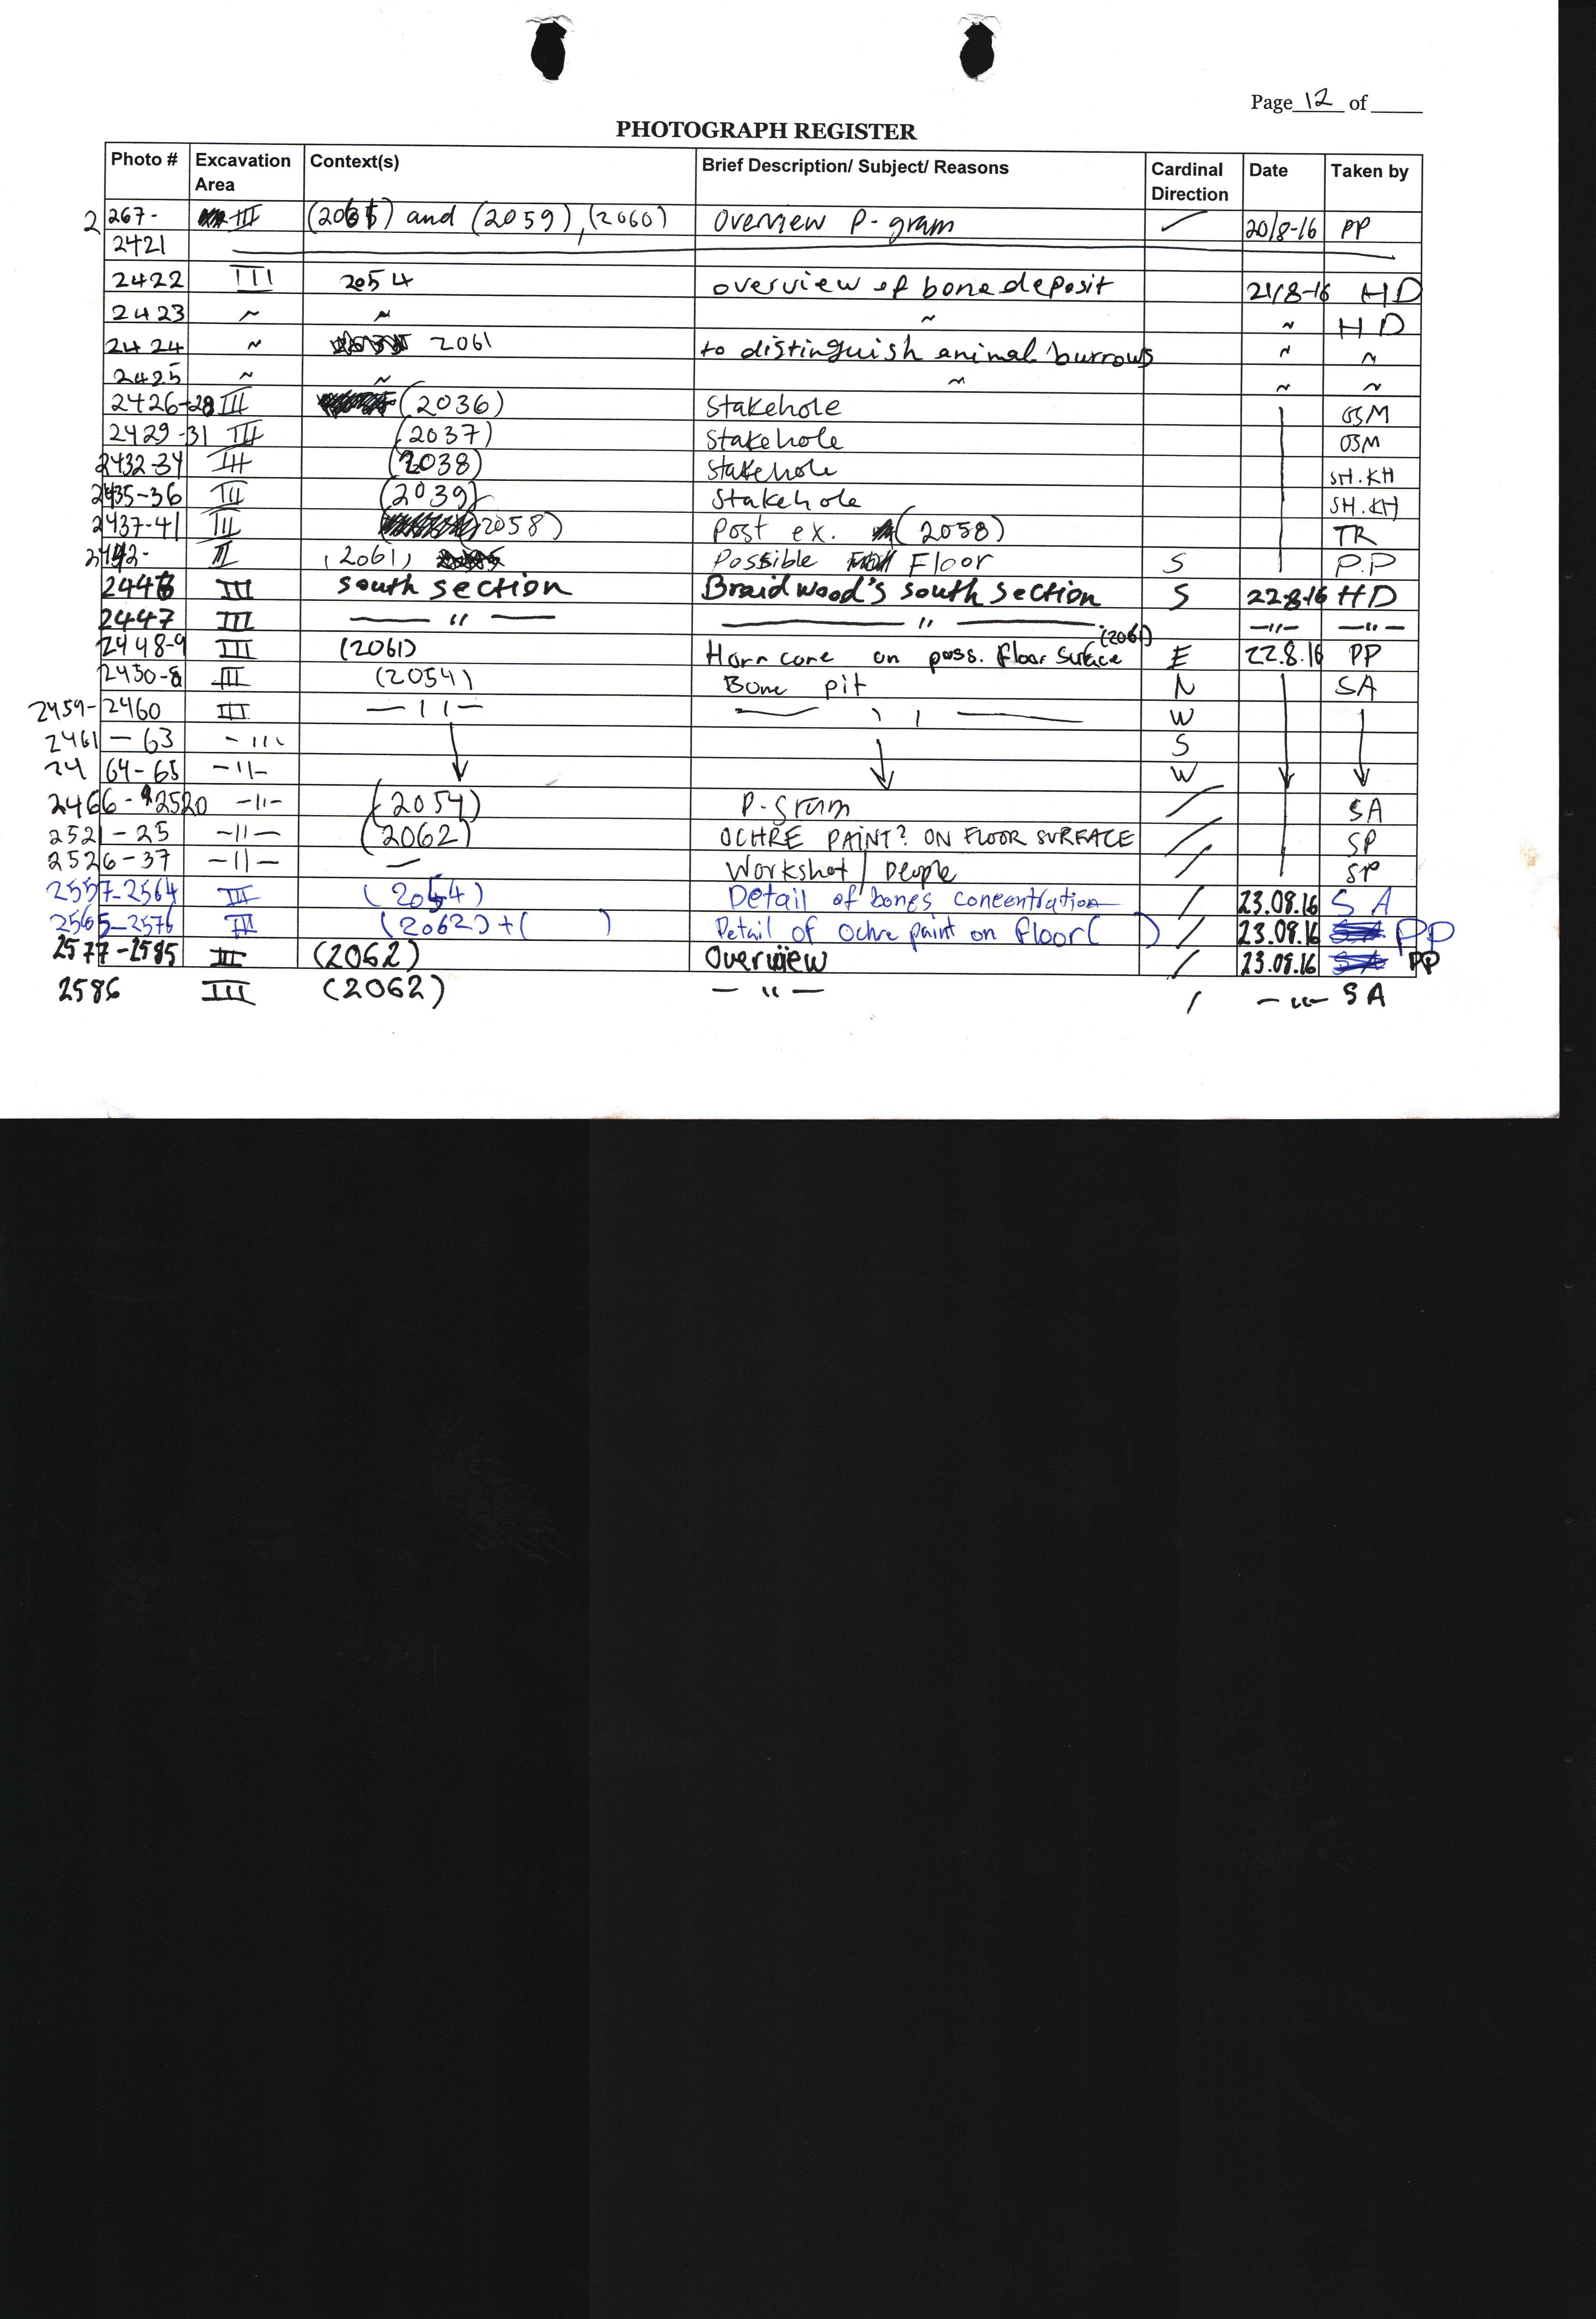 Page 12 of
PHOTOGRAPH REGISTER
Photo # Excavation Area Context(s) Brief Description/ Subject/ Reasons Cardinal Direction Date Taken by
2267- III and (2059), (2060) Overview P-gram / 20/8-16 PP
2421
2422 III 2054 overview of bone deposit 21/8-16 HD
2423 ~ ~ ~ ~ HD
2424 ~ 2061 to distinguish animal burrows ~ ~
2425 ~ ~ ~ ~ ~
2426-28 III (2036) Stakehole OSM
2429-31 III (2037) Stakehole OSM
2432-34 III (2038) Stakehole SH.KH
2435-36 III (2039) Stakehole SH.KH
2437-41 III (2058) Post ex. (2058) TR
2442- II (2061) Possible Floor S P.P
2446 III south section Braidwood's south section S 22.8.16 HD
2447 III — " — — " — —"— —"—
2448-9 III (2061) Horn core on poss. floor surface (2061) E 22.8.16 PP
2450-8 III (2054) Bone pit N SA
2459-2460 III — 11 — — 11 — W
2461-63 -11- S
2464-65 -11- W
2466-2520 -11- (2054) P-gram / SA
2521-25 -11- (2062) OCHRE PAINT? ON FLOOR SURFACE / SP
2526-37 -11- — Workshot / People / SP
2557-2564 III (2054) Detail of bones concentration / 23.08.16 SA
2565-2576 III (2062)+( ) Detail of Ochre paint on floor ( ) / 23.08.16 PP
2577-2585 III (2062) Overview / 23.08.16 PP
2586 III (2062) — " — / — " — SA